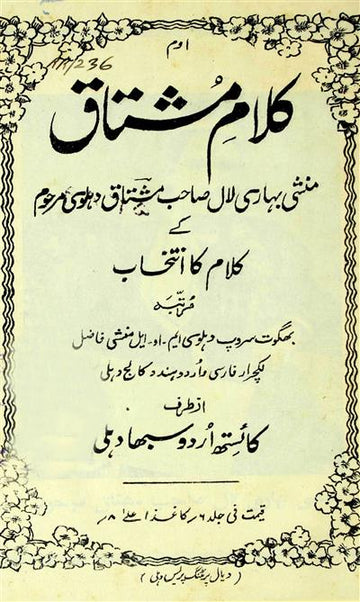 اوم
AM/236
کلامِ مُشتاق
منشی بہاری لال صاحب مشتاق دہلوی مرحوم
کے
کلام کا انتخاب
مُرتّبہ
بھگوت سروپ دہلوی ایم۔ او۔ ایل منشی فاضل
لکچرار فارسی و اُردو ہندو کالج دہلی
از طرف
کائستھ اُردو سبھا دہلی
قیمت فی جلد ۶؍ کاغذ اعلےٰ ۸؍
(دیال پرنٹنگ پریس دہلی)